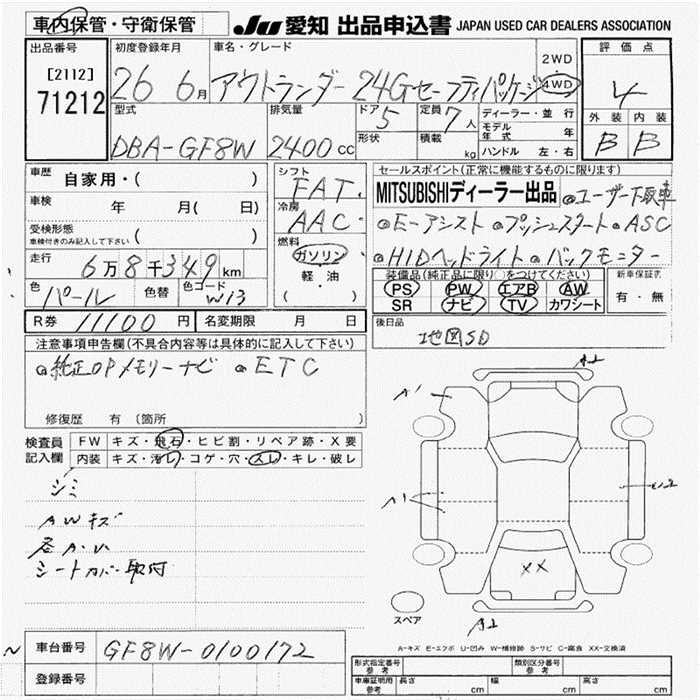 車内保管・守衛保管
JU 愛知 出品申込書 JAPAN USED CAR DEALERS ASSOCIATION
出品番号
[2112]
71212
初度登録年月
26 6月
車名・グレード
アウトランダー 24Gセーフティパッケージ
2WD
4WD
評価点
4
外装 内装
B B
型式
DBA-GF8W
排気量
2400 cc
ドア
5
形状
定員
7人
積載
kg
ディーラー・並行
モデル年式 年
ハンドル 左・右
車歴
自家用・( )
車検
年 月( 日)
受検形態
車検付きのみ記入して下さい ( )
走行
6万8千349km
色
パール
色替
色コード
W13
シフト
FAT
冷房
AAC
燃料
ガソリン
軽・油
( )
セールスポイント(正常に機能するものに限ります)
MITSUBISHIディーラー出品 ◎ユーザー下取車
◎E-アシスト ◎プッシュスタート ◎ASC
◎HIDヘッドライト ◎バックモニター
装備品(純正品に限り○をつけてください)
PS PW エアB AW
SR ナビ TV カワシート
新車保証書
有・無
R券 11100円 名変期限 月 日
後日品
地図SD
注意事項申告欄(不具合内容等は具体的に記入して下さい)
◎純正OPメモリーナビ ◎ETC
修復歴 有 (箇所 )
検査員
記入欄
FW キズ・飛石・ヒビ割・リペア跡・X要
内装 キズ・汚レ・コゲ・穴・スレ・キレ・破レ
シミ
AWキズ
シートカバー取付
A2
A1
A1
XX
A2
スペア
A-キズ E-エクボ U-凹み W-補修跡 S-サビ C-腐食 XX-交換済
車台番号 GF8W-0100172
登録番号
形式指定番号
参考
類別区分番号
参考
車庫証明用
参考
長さ cm 幅 cm 高さ cm